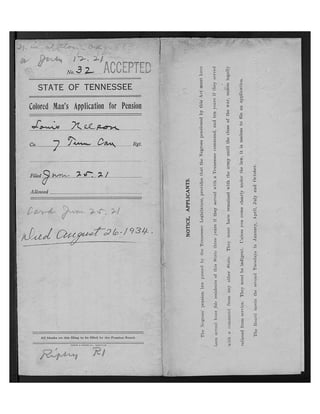 July 12.21
No. 32 ACCEPTED
STATE OF TENNESSEE
Colored Man's Application for Pension
Louis Nelson
Co 7 Tenn Cav Regt.
Filed June 25.21
Allowed
Card June 25.21
Died August 26-1934.
All blanks on this filing to be filled by the Pension Board.
Ripley R1
NOTICE, APPLICANTS.
The Negroes' pension law passed by the Tennessee Legislature, provides that the Negroes pensioned by this Act must have
been actual bona fide residents of this State three years if they served with a Tennessee command, and ten years if they served
with a command from any other State. They must have remained with the army until the close of the war, unless legally
relieved from service. They must be indigent. Unless you come clearly under the law, it is useless to file an application.
The Board meets the second Tuesdays in January, April, July and October.